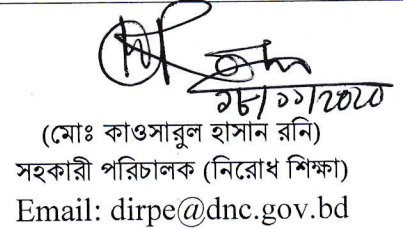 ১৮/১১/2020
(মোঃ কাওসারুল হাসান রনি)
সহকারী পরিচালক (নিরোধ শিক্ষা)
Email: dirpe@dnc.gov.bd